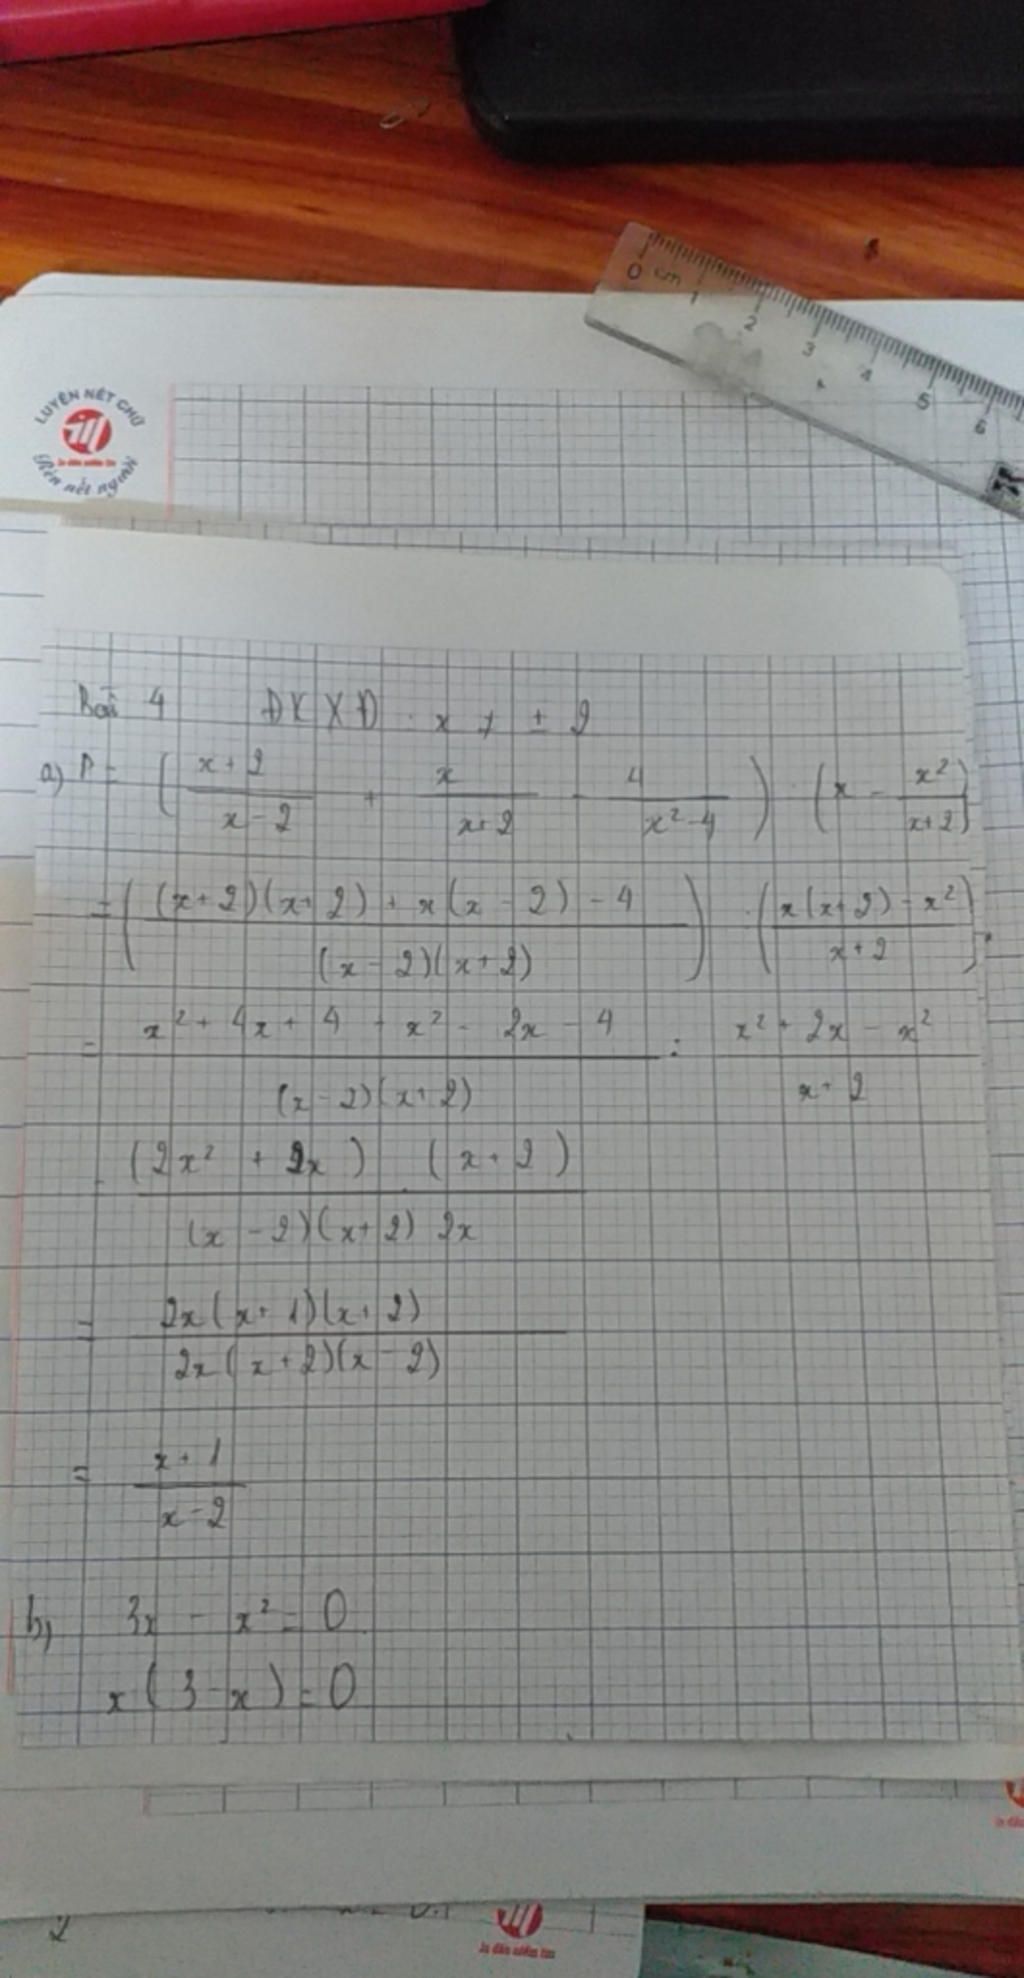 0 cm 1 2 3 4 5 6
LUYỆN NÉT CHỮ
Rèn nết người
Bài 4 ĐKXĐ : x ≠ ± 2
a) P = ( (x + 2)/(x - 2) + x/(x + 2) - 4/(x² - 4) ) : ( x - x²/(x + 2) )
= ( ((x + 2)(x + 2) + x(x - 2) - 4)/((x - 2)(x + 2)) ) : ( (x(x + 2) - x²)/(x + 2) )
= (x² + 4x + 4 + x² - 2x - 4)/((x - 2)(x + 2)) : (x² + 2x - x²)/(x + 2)
= ((2x² + 2x) . (x + 2))/((x - 2)(x + 2) 2x)
= (2x(x + 1)(x + 2))/(2x(x + 2)(x - 2))
= (x + 1)/(x - 2)
b) 3x - x² = 0
x(3 - x) = 0